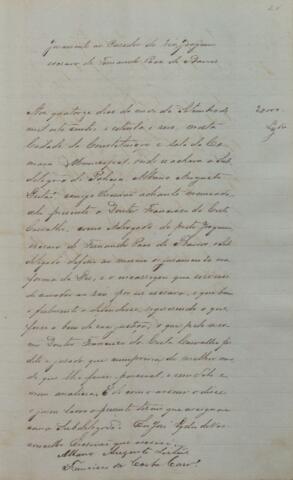 Juramento ao Curador do reo Joaquim
escravo de Fernando Paes de Barros
Aos quatorze dias do mes de Setembro de
mil oito centos e setenta e seis, nesta
Cidade da Constituição e sala da Ca-
mara Municipal, onde se achava o Sub
delegado de Policia Albano Augusto
Leitão comigo Escrivão adiante nomeado,
ahi presente o Doutor Francisco da Costa
Carvalho, como Advogado do preto Joaquim
escravo de Fernando Paes de Barros, o Sub
delegado deferio ao mesmo o juramento na
forma da Lei, e o encarregou que servisse
de curador ao réo, por ser escravo, e que bem
e fielmente o defendesse, requerendo o que
fosse a bem de sua justiça, o que pelo mes-
mo Doutor Francisco da Costa Carvalho foi
dito e jurado que cumpriria do melhor mo-
do que lhe fosse possivel, e sem dolo e
nem malicia. E de como assim o disse
e jurou lavro o presente termo que assigna
com o Subdelegado. Eu
Escrivão que escrevi.
Albano Augusto Leitão
Francisco da Costa Carvº